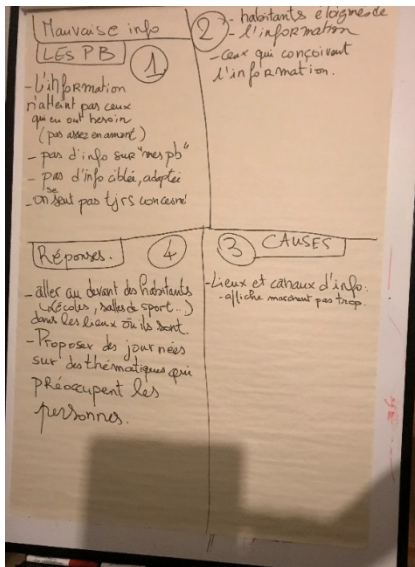 Mauvaise info
LES PB
1
- L'information
n'atteint pas ceux
qui en ont besoin
(pas assez en amont)
- pas d'info sur "mes pb"
- pas d'info ciblée, adaptée
- on se sent pas tjrs concerné
2
- habitants éloignés de
l'information
- ceux qui conçoivent
l'information.
Réponses.
4
- aller au devant des habitants
(écoles, salles de sport...)
dans les lieux où ils sont.
- Proposer des journées
sur des thématiques qui
PRéoccupent les
personnes.
3
CAUSES
- Lieux et canaux d'info.
- affiche marchent pas trop.